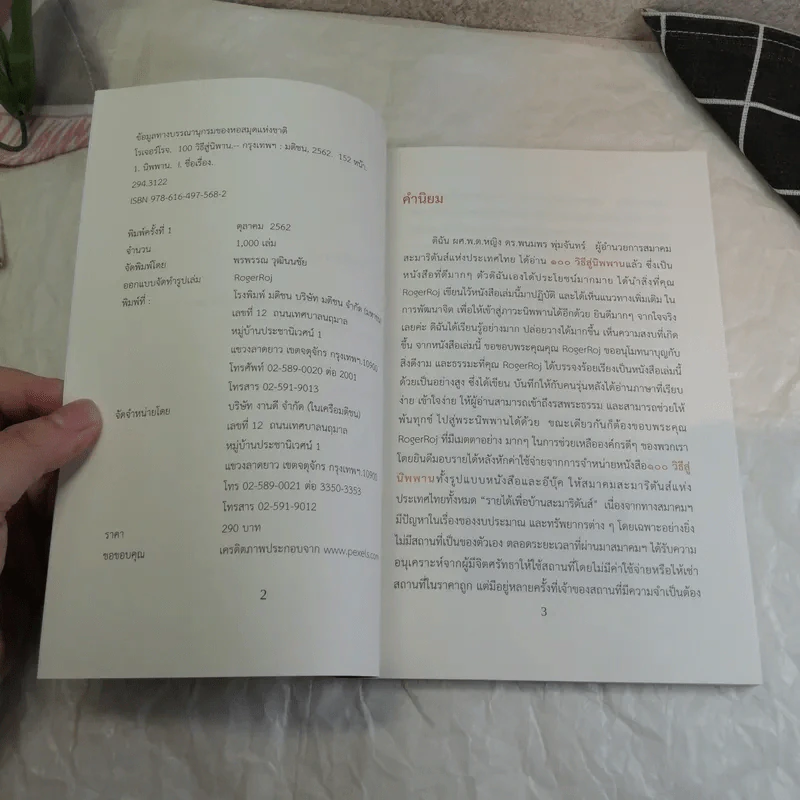 ข้อมูลทางบรรณานุกรมของหอสมุดแห่งชาติ
โรเจอร์โรจ. 100 วิธีสู่นิพพาน.-- กรุงเทพฯ : มติชน, 2562 152 หน้า.
1. นิพพาน. I. ชื่อเรื่อง.
294.3122
ISBN 978-616-497-568-2
พิมพ์ครั้งที่ 1 ตุลาคม 2562
จำนวน 1,000 เล่ม
จัดพิมพ์โดย พรพรรณ วุฒินนชัย
ออกแบบจัดทำรูปเล่ม RogerRoj
พิมพ์ที่ : โรงพิมพ์ มติชน บริษัท มติชน จำกัด (มหาชน)
เลขที่ 12 ถนนเทศบาลนฤมาล
หมู่บ้านประชานิเวศน์ 1
แขวงลาดยาว เขตจตุจักร กรุงเทพฯ 10900
โทรศัพท์ 02-589-0020 ต่อ 2001
โทรสาร 02-591-9013
จัดจำหน่ายโดย บริษัท งานดี จำกัด (ในเครือมติชน)
เลขที่ 12 ถนนเทศบาลนฤมาล
หมู่บ้านประชานิเวศน์ 1
แขวงลาดยาว เขตจตุจักร กรุงเทพฯ 10900
โทร 02-589-0021 ต่อ 3350-3353
โทรสาร 02-591-9012
ราคา 290 บาท
ขอขอบคุณ เครดิตภาพประกอบจาก www.pexels.com
2
คำนิยม
ดิฉัน ผศ.พ.ต.หญิง ดร.พนมพร พุ่มจันทร์ ผู้อำนวยการสมาคม
สะมาริตันส์แห่งประเทศไทย ได้อ่าน ๑๐๐ วิธีสู่นิพพานแล้ว ซึ่งเป็น
หนังสือที่ดีมากๆ ตัวดิฉันเองได้ประโยชน์มากมาย ได้นำสิ่งที่คุณ
RogerRoj เขียนไว้หนังสือเล่มนี้มาปฏิบัติ และได้เห็นแนวทางเพิ่มเติม ใน
การพัฒนาจิต เพื่อให้เข้าสู่ภาวะนิพพานได้อีกด้วย ยินดีมากๆ จากใจจริง
เลยค่ะ ดิฉันได้เรียนรู้อย่างมาก ปล่อยวางได้มากขึ้น เห็นความสงบที่เกิด
ขึ้น จากหนังสือเล่มนี้ ขอขอบพระคุณคุณ RogerRoj ขออนุโมทนาบุญกับ
สิ่งดีงาม และธรรมะที่คุณ RogerRoj ได้บรรจงร้อยเรียงเป็นหนังสือเล่มนี้
ด้วยเป็นอย่างสูง ซึ่งได้เขียน บันทึกให้กับคนรุ่นหลังได้อ่านภาษาที่เรียบ
ง่าย เข้าใจง่าย ให้ผู้อ่านสามารถเข้าถึงรสพระธรรม และสามารถช่วยให้
พ้นทุกข์ ไปสู่พระนิพพานได้ด้วย ขณะเดียวกันก็ต้องขอบพระคุณ
RogerRoj ที่มีเมตตาอย่าง มากๆ ในการช่วยเหลือองค์กรดีๆ ของพวกเรา
โดยยินดีมอบรายได้หลังหักค่าใช้จ่ายจากการจำหน่ายหนังสือ๑๐๐ วิธีสู่
นิพพานทั้งรูปแบบหนังสือและอีบุ๊ค ให้สมาคมสะมาริตันส์แห่ง
ประเทศไทยทั้งหมด "รายได้เพื่อบ้านสะมาริตันส์" เนื่องจากทางสมาคมฯ
มีปัญหาในเรื่องของงบประมาณ และทรัพยากรต่าง ๆ โดยเฉพาะอย่างยิ่ง
ไม่มีสถานที่เป็นของตัวเอง ตลอดระยะเวลาที่ผ่านมาสมาคมฯ ได้รับความ
อนุเคราะห์จากผู้มีจิตศรัทธาให้ใช้สถานที่โดยไม่มีค่าใช้จ่ายหรือให้เช่า
สถานที่ในราคาถูก แต่มีอยู่หลายครั้งที่เจ้าของสถานที่มีความจำเป็นต้อง
3